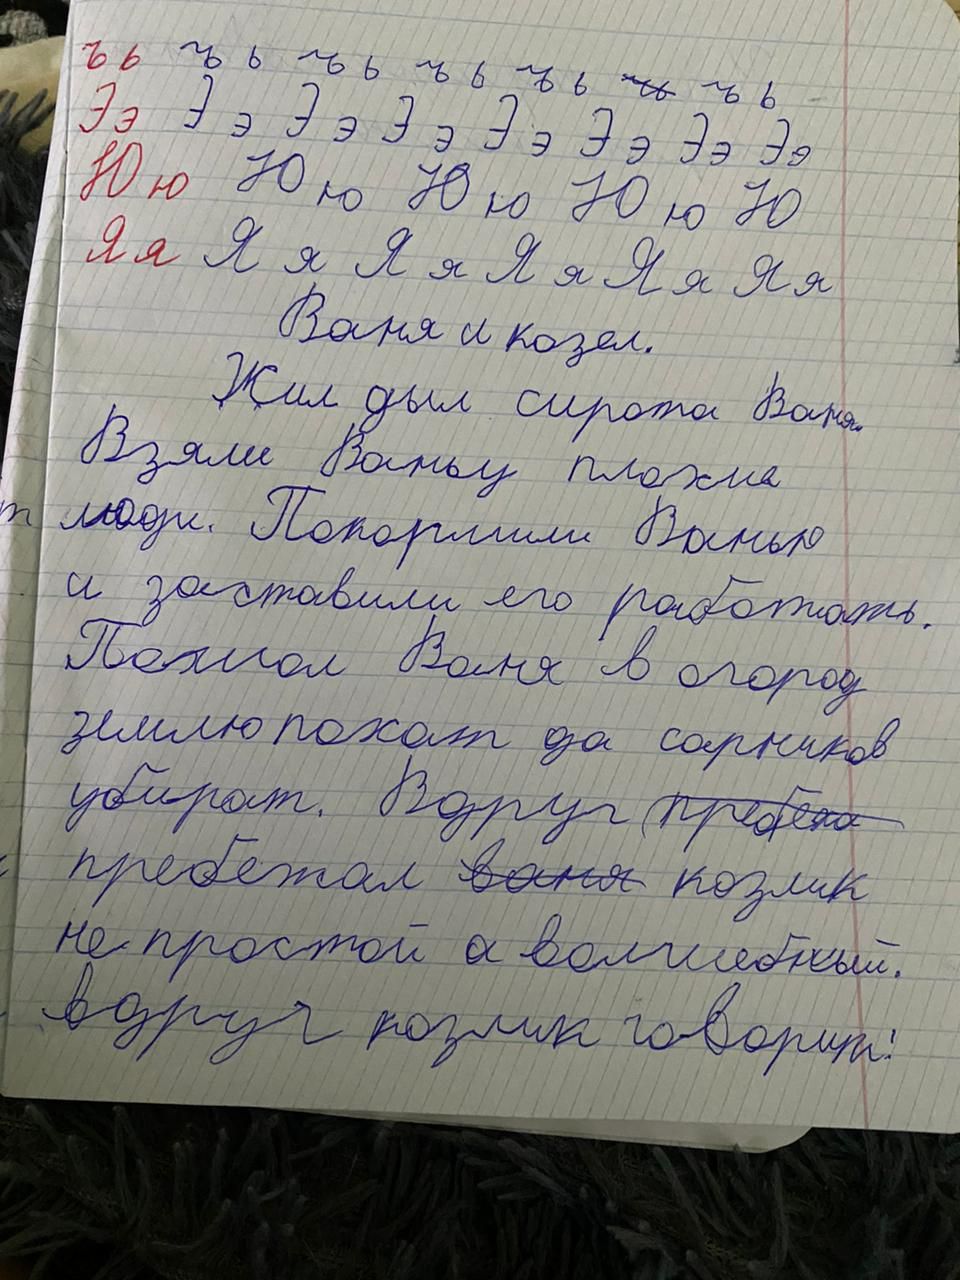 ъ ь ъ ь ъ ь ъ ь ъ ь ъ ъ ь
Э э Э э Э э Э э Э э Э э Э э Э э
Ю ю Ю ю Ю ю Ю ю Ю
Я я Я я Я я Я я Я я Я я
Ваня и козел.
Жил дыл сирота Ваня.
Взяли Ваньу плохие
люди. Покормили Ванью
и заставили его работать.
Пошол Ваня в огород
землю пахат да сорников
убират. Вдруг пребежа
пребежал ваня козлик
не простой а волшебный.
вдруг козлик говорит: